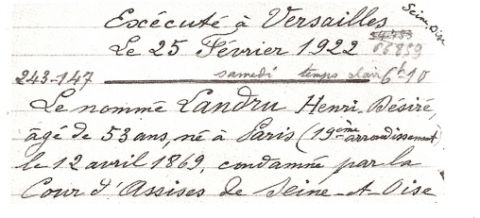 Exécuté à Versailles
Seine-Oise
Le 25 Février 1922
243-147 samedi temps clair 6h 10
Le nommé Landru Henri-Désiré,
âgé de 53 ans, né à Paris (19ème arrondissement
le 12 avril 1869, condamné par la
Cour d'Assises de Seine-et-Oise